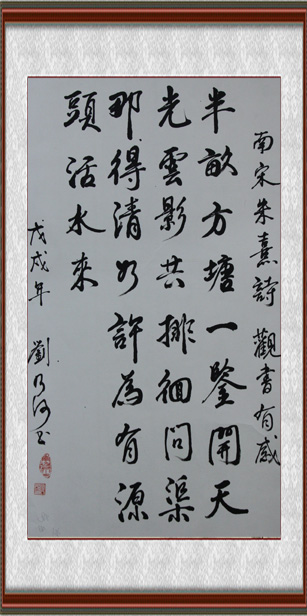 南宋朱熹詩 觀書有感
半畝方塘一鑒開天
光雲影共排徊問渠
那得清如許為有源
頭活水來
戊戌年 劉乃河書